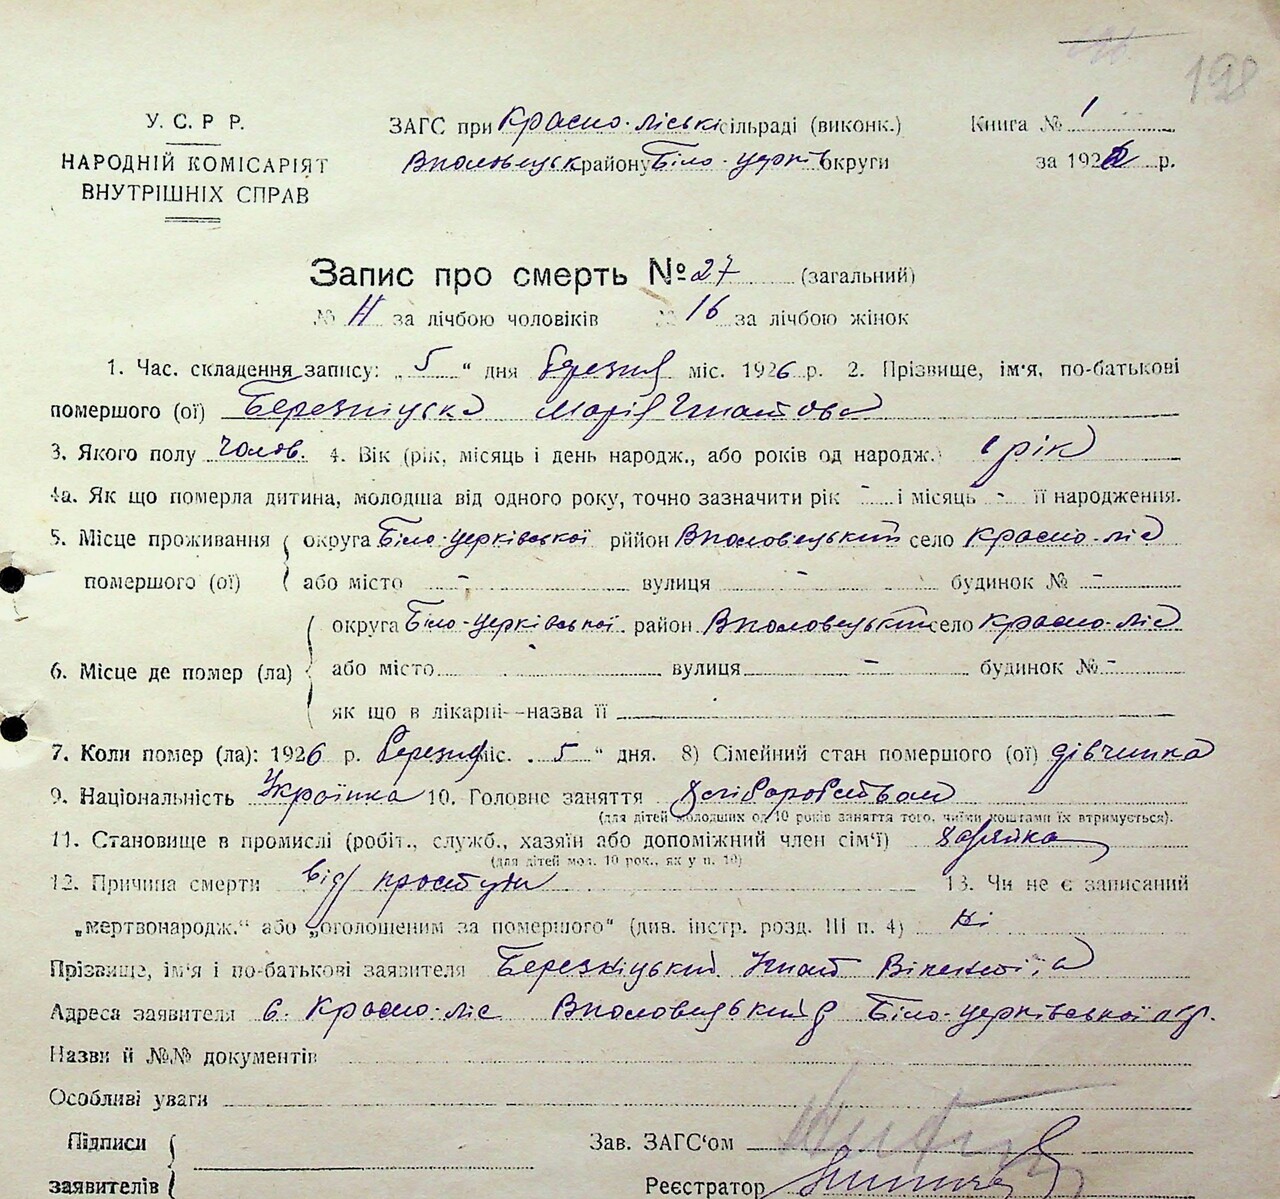 198
У. С. Р Р.
НАРОДНІЙ КОМІСАРІЯТ
ВНУТРІШНІХ СПРАВ
ЗАГС при Красно-ліські сільраді (виконк.)
Вполовецьк району Біло-церків округи
Книга № 1
за 1926 р.
Запис про смерть № 27 (загальний)
№ 11 за лічбою чоловіків № 16 за лічбою жінок
1. Час. складення запису: „ 5 “ дня березня міс. 1926 р. 2. Прізвище, ім'я, по-батькові
помершого (ої) Березніцька Марія Гнатова
3. Якого полу чолов. 4. Вік (рік, місяць і день народж., або років од народж.) 1 рік
4а. Як що померла дитина, молодша від одного року, точно зазначити рік - і місяць - її народження.
5. Місце проживання округа Біло-церківської рййон Вполовецький село Красно-ліс
помершого (ої) або місто - вулиця - будинок № -
округа Біло-церківської район Вполовецький село Красно-ліс
6. Місце де помер (ла) або місто - вулиця - будинок № -
як що в лікарні—назва її
7. Коли помер (ла): 1926 р. березня міс. „ 5 “ дня. 8) Сімейний стан помершого (ої) дівчинка
9. Національність Українка 10. Головне заняття хліборобством
(для дітей молодших од 10 років заняття того, чиїми коштами їх втримується).
11. Становище в промислі (робіт., служб., хазяїн або допоміжний член сім'ї) хазяйка
(для дітей мол. 10 рок., як у п. 10)
12. Причина смерти від простуди 13. Чи не є записаний
„мертвонародж.“ або „оголошеним за помершого“ (див. інстр. розд. III п. 4) ні
Прізвище, ім'я і по-батькові заявителя Березніцький Гнат
Адреса заявителя с. Красно-ліс Вполовецький р Біло-церківської окр.
Назви й №№ документів
Особливі уваги
Підписи
заявителів
Зав. ЗАГС'ом
Реєстратор